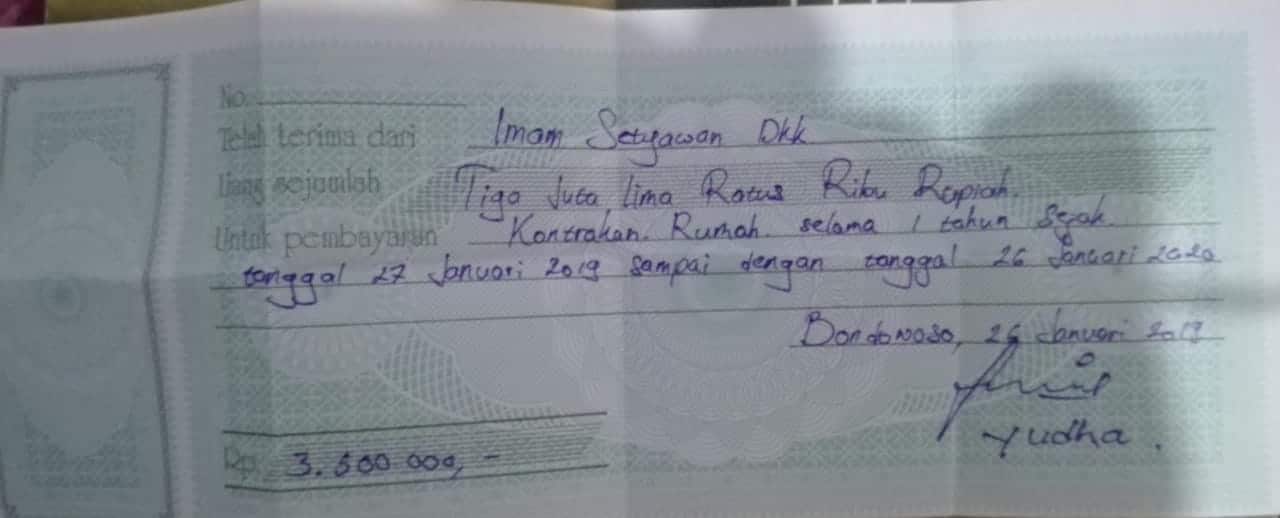 No.
Telah terima dari Imam Setyawan Dkk
Uang sejumlah Tiga Juta lima Ratus Ribu Rupiah.
Untuk pembayaran Kontrakan. Rumah. selama 1 tahun Sejak
tanggal 27 Januari 2019 sampai dengan tanggal 26 Januari 2020
Bondowoso, 26 Januari 2019
Yudha.
Rp. 3.500.000,-